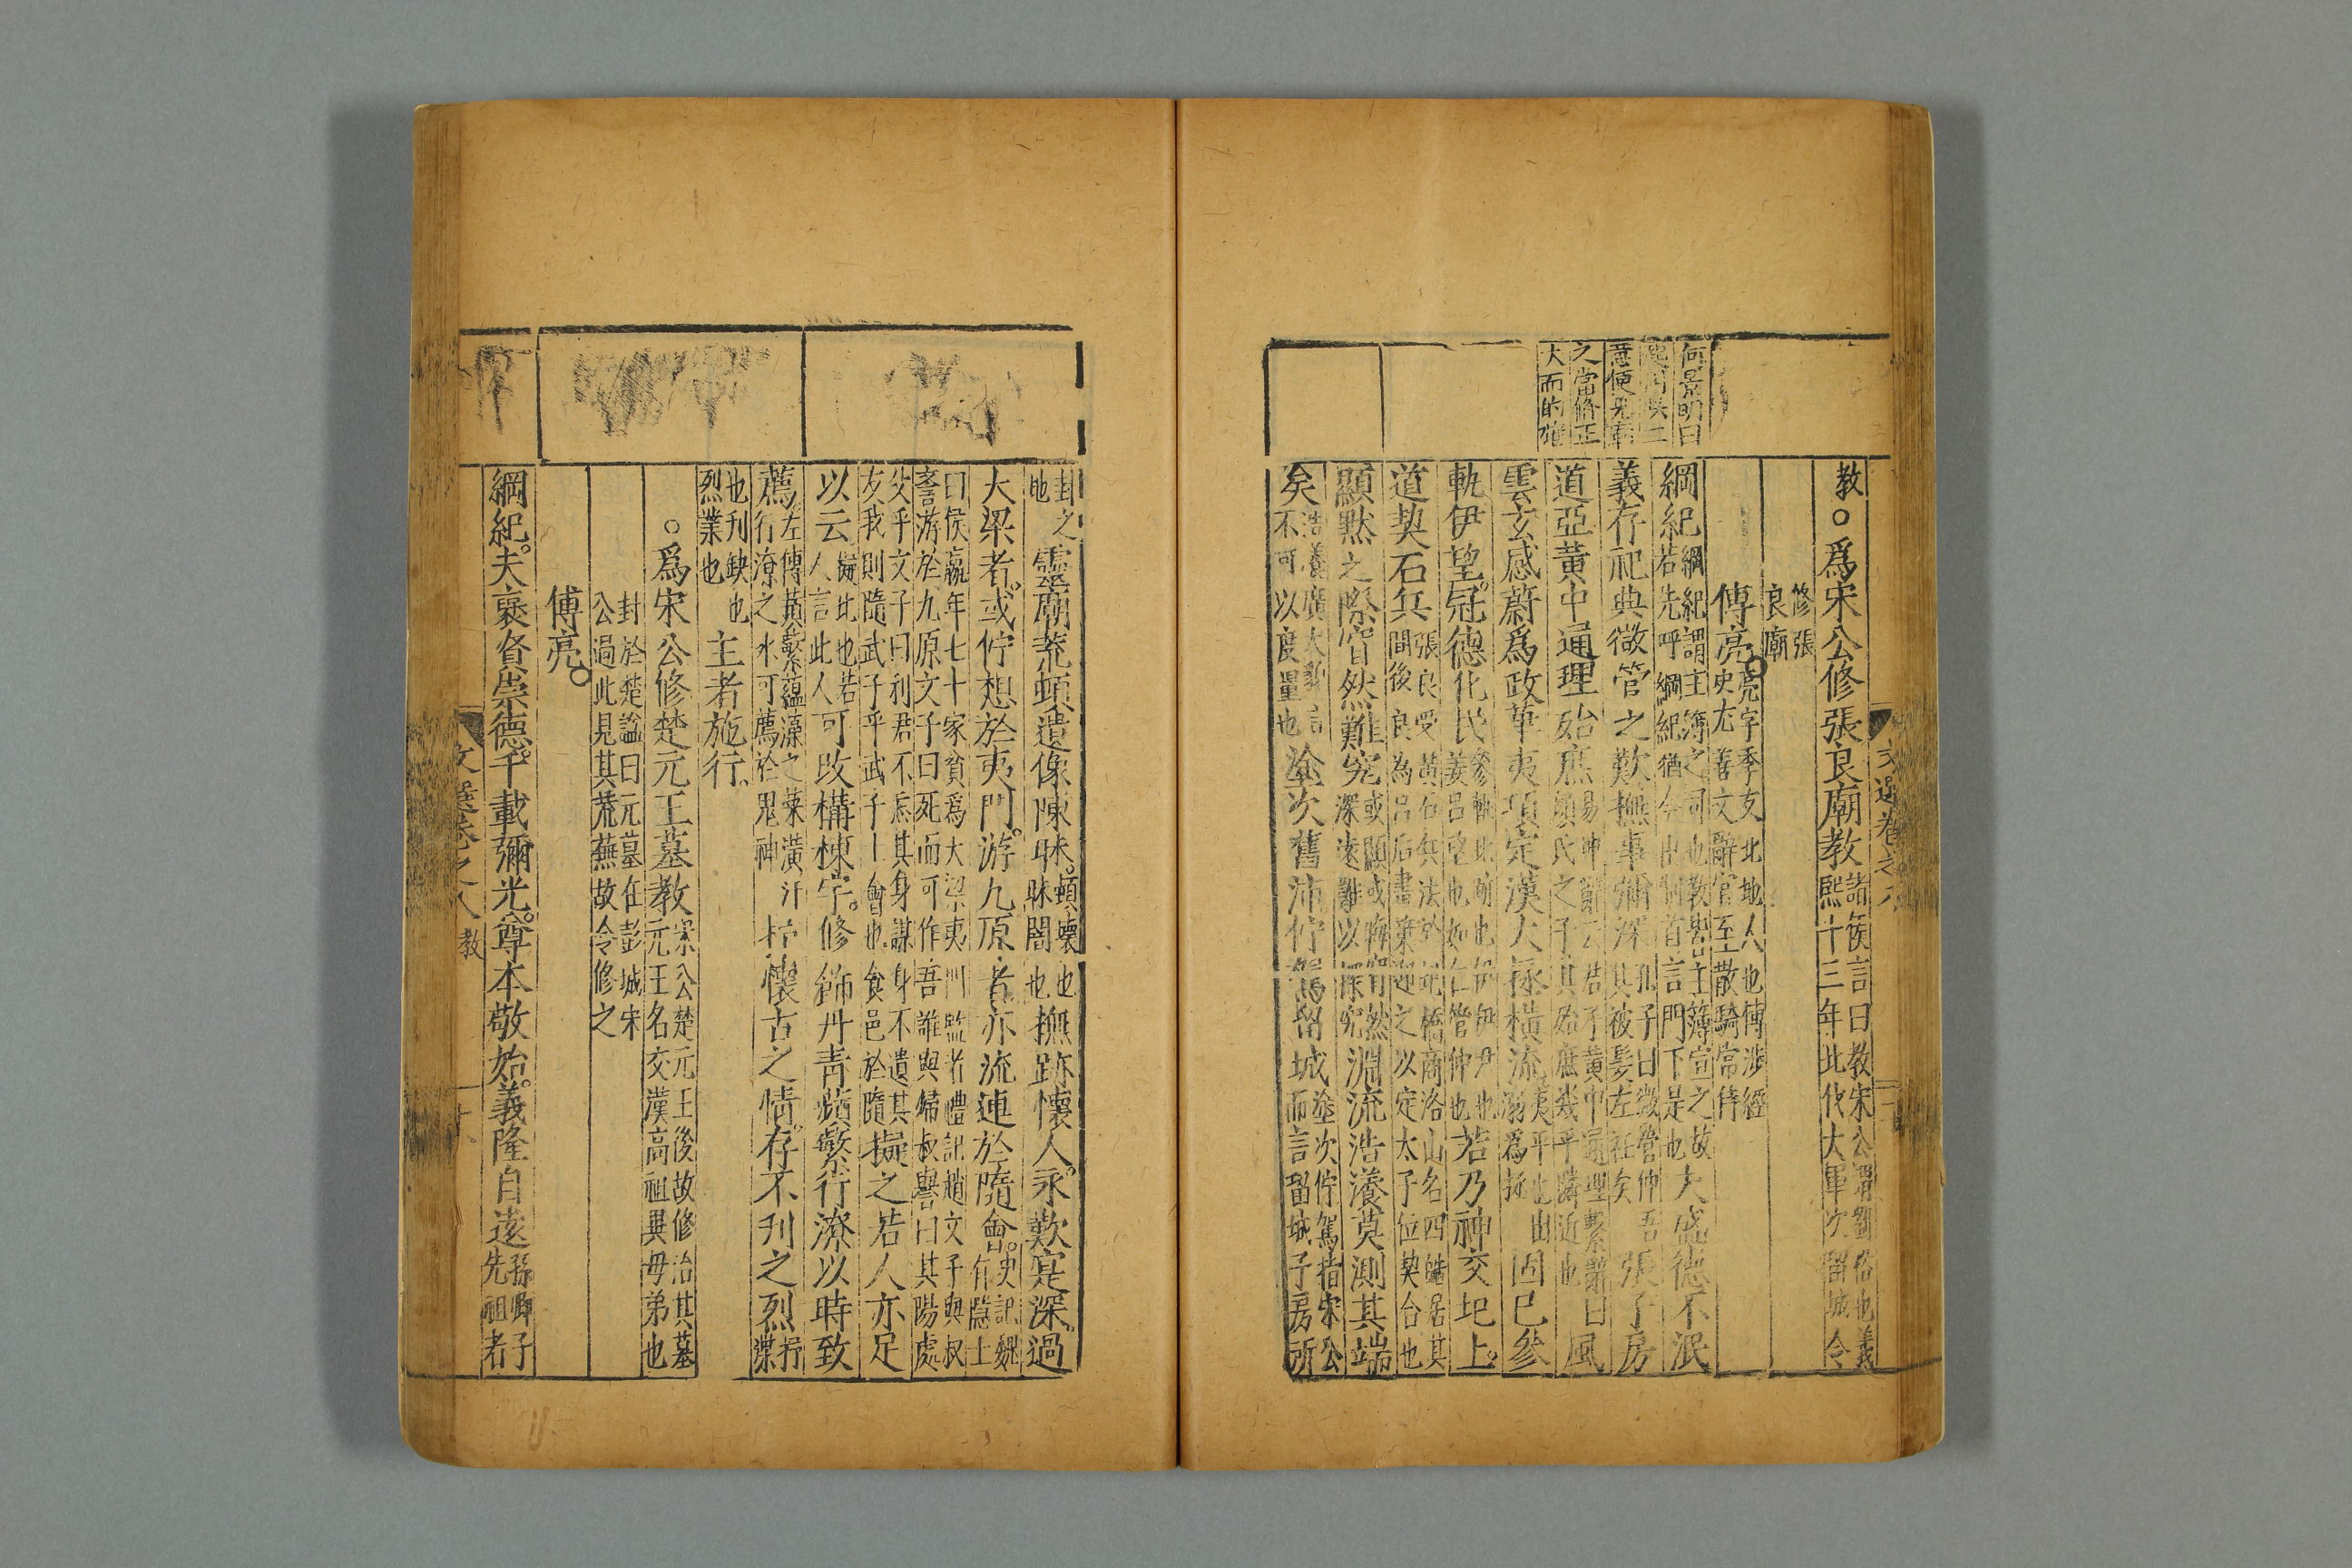 教○爲宋公修張良廟教
諸侯言曰教宋公謂劉裕也義
熙十三年北伐大軍次留城令
修張
良廟
傅亮
亮字季友北地人也傅涉經
史尤善文辭官至散騎常侍
綱紀
綱紀謂主簿之司也教皆主簿宣之故
若先呼綱紀猶今出制首言門下是也
夫盛德不泯
義存祀典微管之歎撫事彌深
孔子曰微管仲吾
其被髮左衽矣
張子房
道亞黃中通理殆庶
易坤卦云君子黃中通理繫辭曰
顏氏之子其殆庶幾乎隣近也
風
雲玄感蔚爲政華夷項定漢大拯橫流
夷平也
溺爲拯
固已參
軌伊望。冠德化民
若乃神交圯上。
道契石兵
張良受黃石兵法於圯橋商洛山名四皓居其
間後良為呂后畫策迎之以定太子位契合也
顯默之際窅然難究
或顯或晦窅然
深遠難以探究
淵流浩瀁莫測其端
矣
浩瀁廣大貌言
不可以度量也
塗次舊沛佇駕留城
塗次佇駕指宋公
而言留城子房所
何景明曰
之當脩正
大而的確
文選卷之八
封之
地
靈廟荒頓遺像陳昧。
頓壞也
昧闇也
撫跡懷人。永歎寔深。過
大梁者。或佇想於夷門。游九原者亦流連於隨會。
史記魏
有隱士
曰侯嬴年七十家貧爲大梁夷門監者禮記趙文子與叔
譽游於九原文子曰死而可作吾誰與歸叔譽曰其陽處
父乎文子曰利君不忘其身謀身不遺其
友我則隨武子乎武子士會也食邑於隨
擬之若人亦足
以云
擬比也若
人言此人
可改構棟宇。修飾丹青蘋蘩行潦以時致
薦。
左傳蘋蘩蘊藻之菜潢汙
行潦之水可薦於鬼神
抒懷古之情。存不刋之烈
抒
渫
也刋缺也
烈業也
主者施行。
○爲宋公修楚元王墓教
宋公楚元王後故修治其墓
元王名交漢高祖異母弟也
封於楚謚曰元墓在彭城宋
公過此見其荒蕪故令修之
傅亮。
綱紀。夫裦賢崇德。千載彌光。尊本敬始。義隆自遠
孫卿子
先祖者
文選卷之八
教